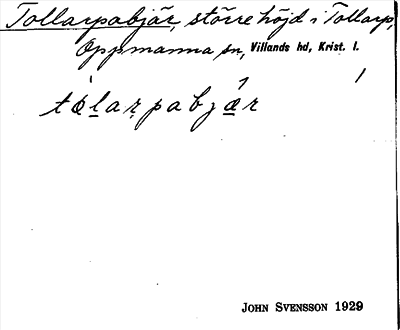 Tollarpabjär, större höjd i Tollarp,
Oppmanna sn, Villands hd, Krist. l.
JOHN SVENSSON 1929